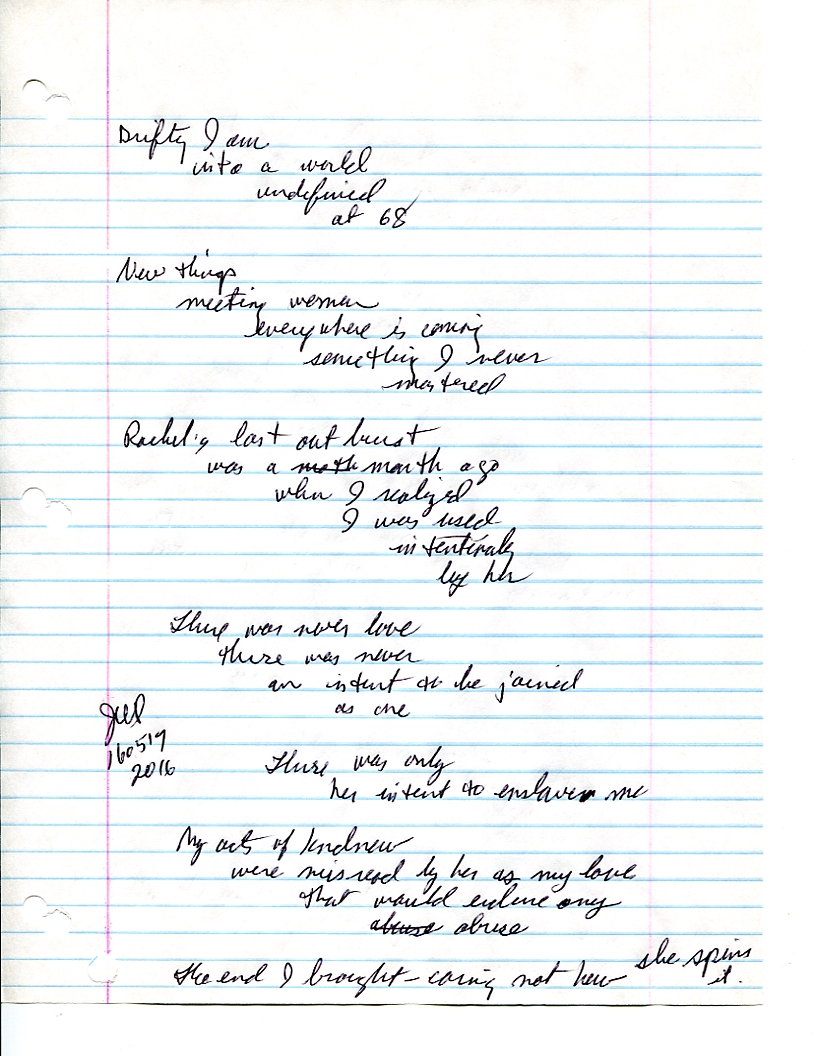 Drifty I am
into a world
undefined
at 68
New things
meeting women
everywhere is coming
something I never
mastered
Rachel's last out burst
was a moth month ago
when I realized
I was used
by her
There was never love
there was never
an intent to be joined
as one
160519
2016
There was only
her intent to enslave me
My acts of kindness
were misread by her as my love
that would endure any
abuse abuse
The end I brought - caring not how she spins
it.